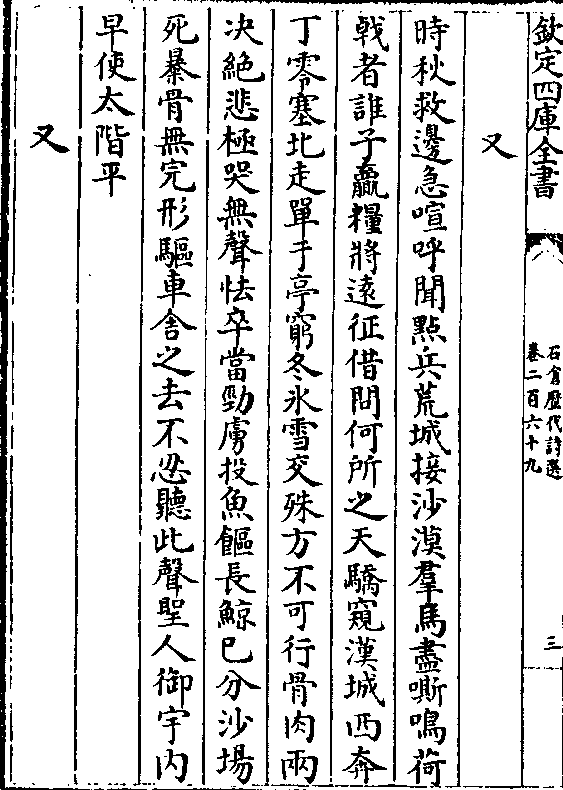 欽定四庫全書
石倉歷代詩選
卷二百六十九
三
又
時秋救邊急喧呼聞㸃兵荒城接沙漠羣馬盡嘶鳴荷
戟者誰子羸糧將逺征借問何所之天驕窺漢城西奔
丁零塞北走單于亭窮冬氷雪交殊方不可行骨肉兩
决絶悲極哭無聲怯卒當勁虜投魚餧長鯨已分沙場
死暴骨無完形驅車舍之去不忍聽此聲聖人御宇内
早使太階平
又